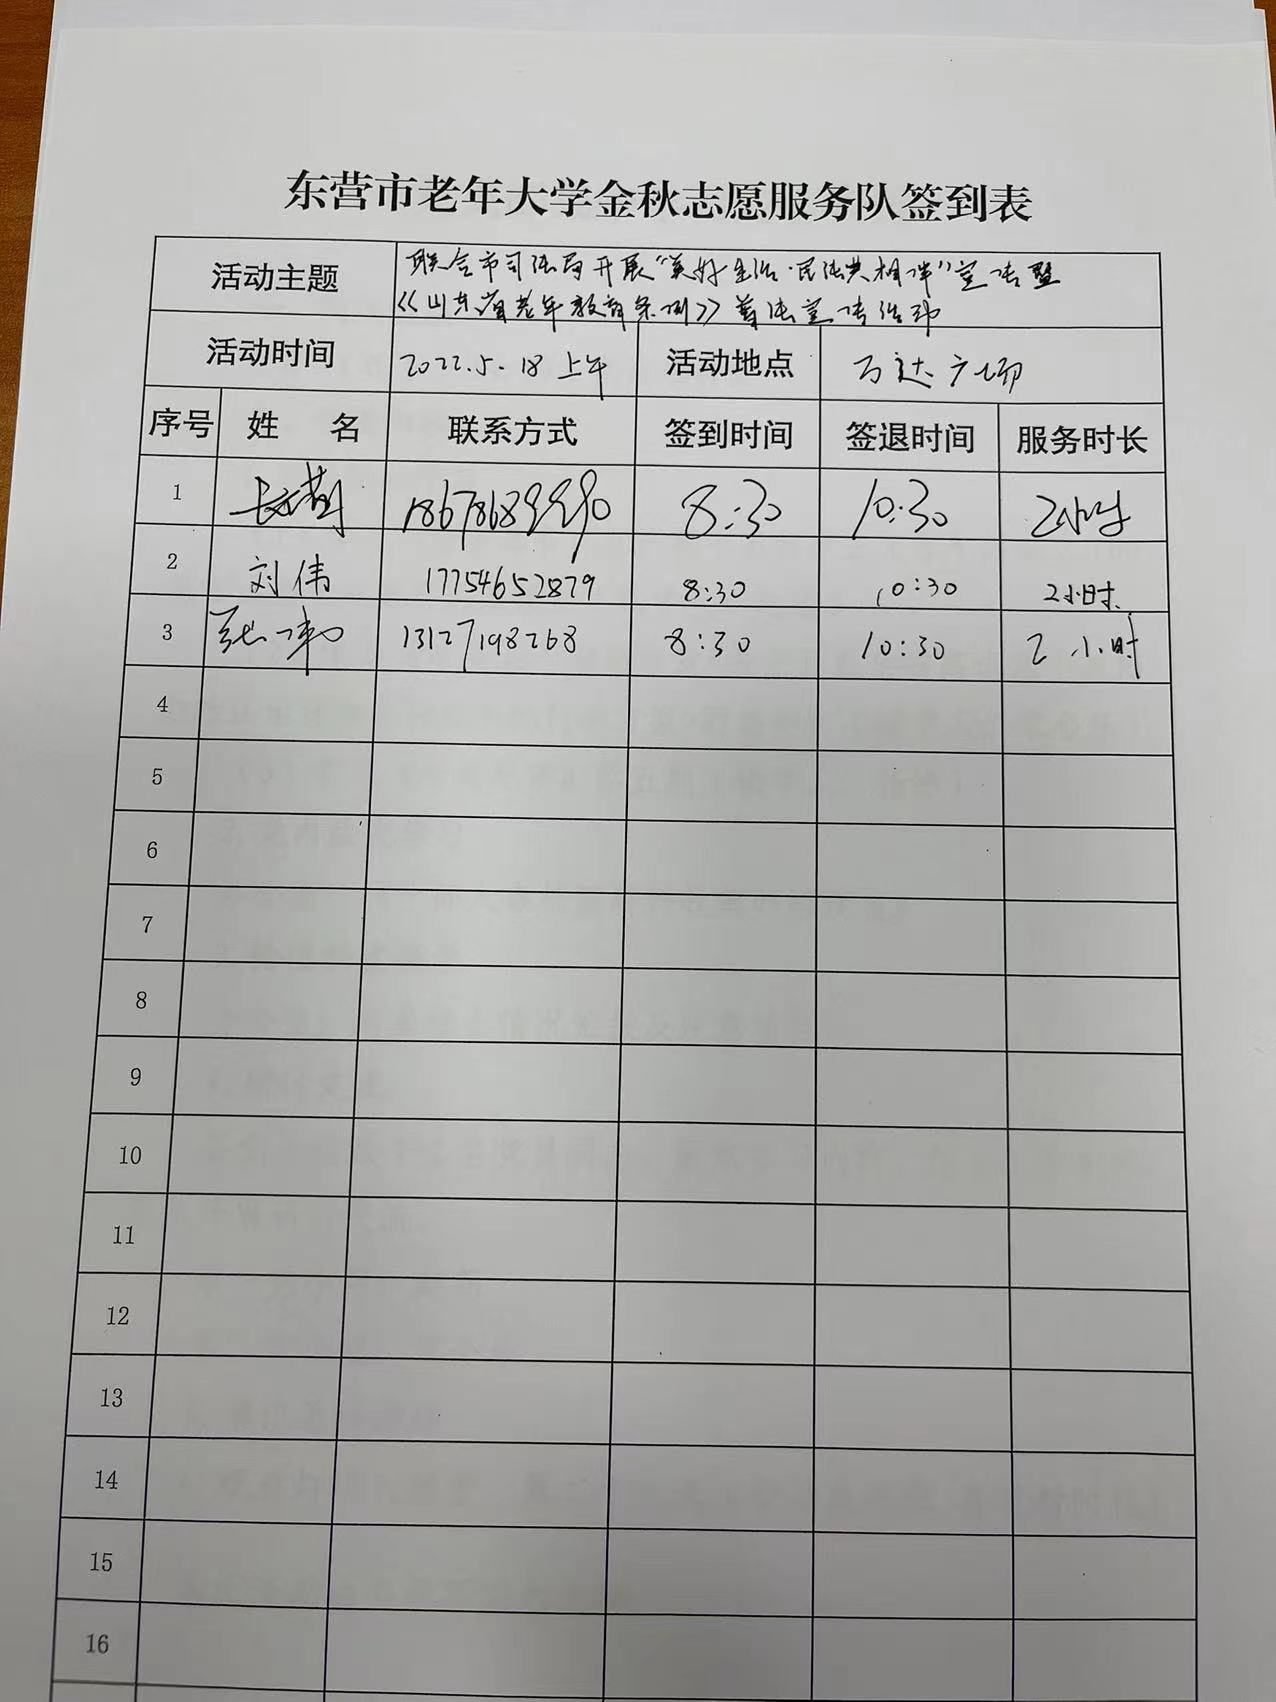 东营市老年大学金秋志愿服务队签到表
活动主题 联合市司法局开展“美好生活·民法典相伴”宣传暨
《山东省老年教育条例》普法宣传活动
活动时间 2022.5.18上午 活动地点 万达广场
序号 姓 名 联系方式 签到时间 签退时间 服务时长
1 18678689990 8:30 10:30 2小时
2 刘伟 17754652879 8:30 10:30 2小时
3 13127198268 8:30 10:30 2小时
4
5
6
7
8
9
10
11
12
13
14
15
16